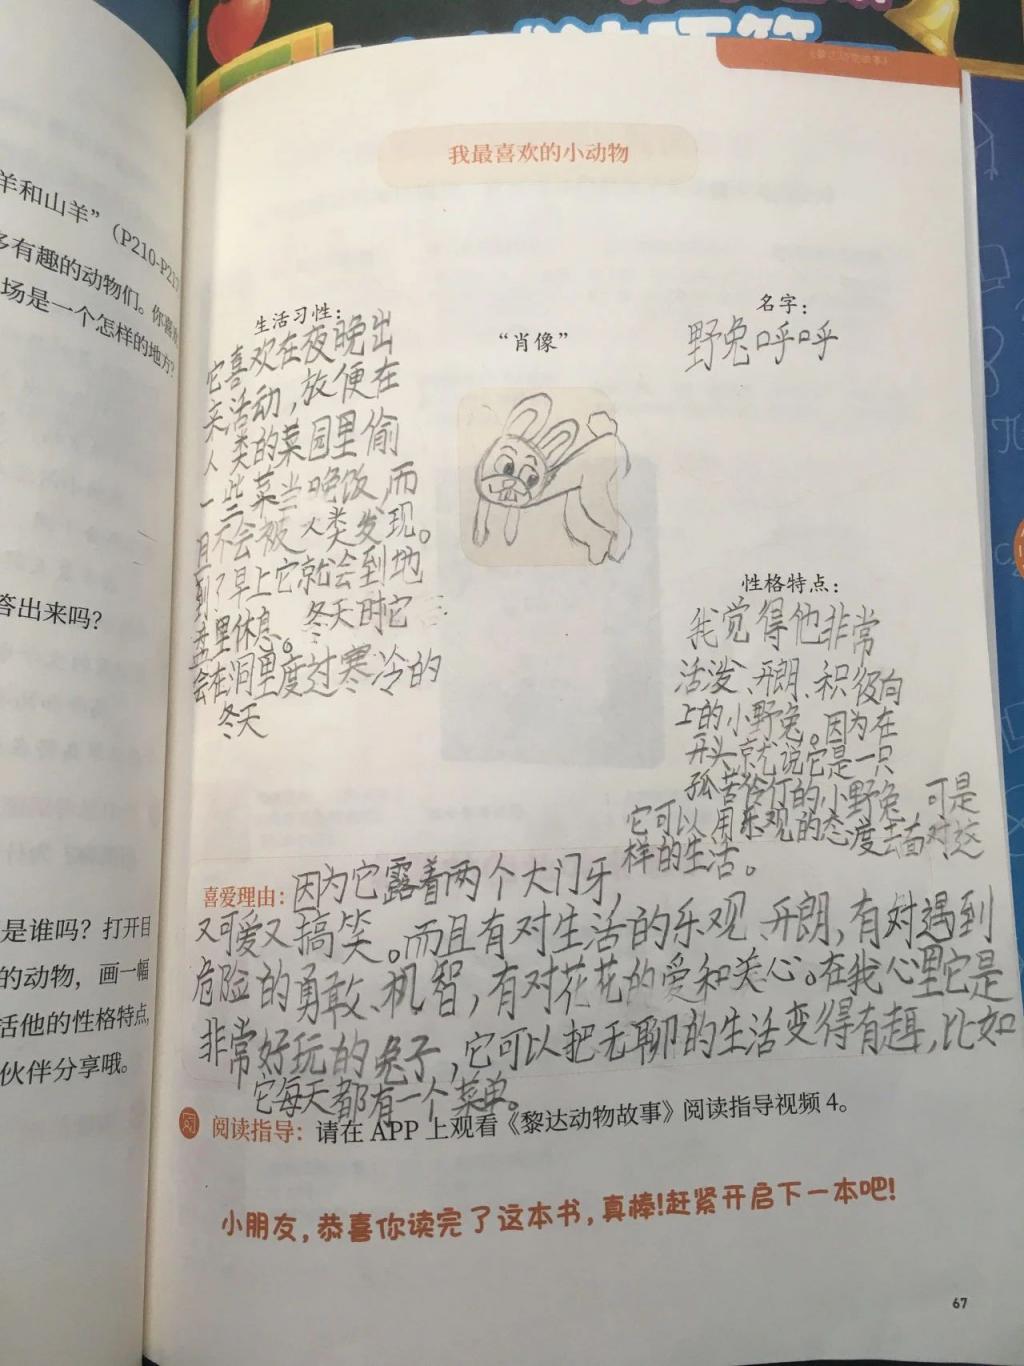 羊和山羊”（P210-P21
多有趣的动物们。你喜
场是一个怎样的地方?
答出来吗?
是谁吗? 打开目
的动物，画一幅
活他的性格特点,
伙伴分享哦。
我最喜欢的小动物
生活习性:
它喜欢在夜晚出
来活动,放便在
人类的菜园里偷
一些菜当晚饭,而
且不会被人类发现。
到了早上它就会到地
里休息。冬天时它
会在洞里度过寒冷的
冬天
“肖像”
名字:
野兔呼呼
性格特点:
我觉得他非常
活泼、开朗、积极向
上的小野兔。因为在
开头就说它是一只
孤苦伶仃的小野兔,可是
它可以用乐观的态度去面对这
样的生活。
喜爱理由: 因为它露着两个大门牙,
又可爱又搞笑。而且有对生活的乐观、开朗,有对遇到
危险的勇敢、机智,有对花花的爱和关心。在我心里它是
非常好玩的兔子,它可以把无聊的生活变得有趣,比如
它每天都有一个菜单。
阅读指导: 请在 APP 上观看《黎达动物故事》阅读指导视频 4。
小朋友, 恭喜你读完了这本书, 真棒!赶紧开启下一本吧!
67